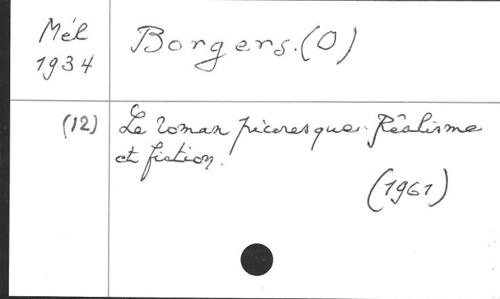 Mél
1934
Borgers. (O)
(12)
Le roman picaresque. Réalisme
et fiction.
(1961)